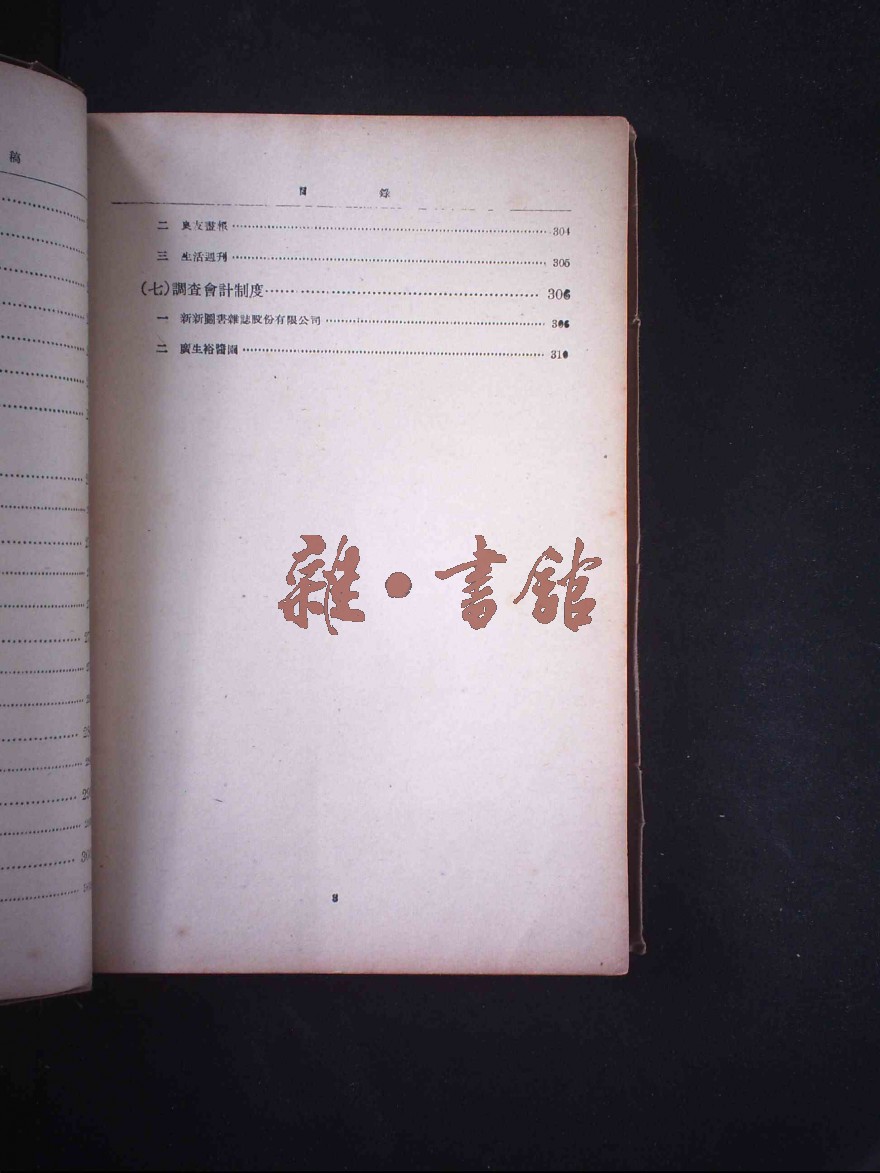 稿
目 錄
二 良友畫報 304
三 生活週刊 305
(七)調查會計制度 306
一 新新圖書雜誌股份有限公司 306
二 廣生裕醬園 310
雜·書館
3